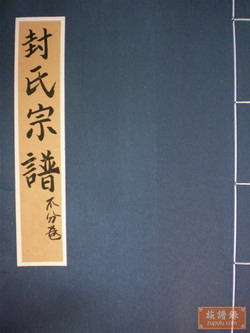 封氏宗譜
不分卷
族譜錄
zupulu.com